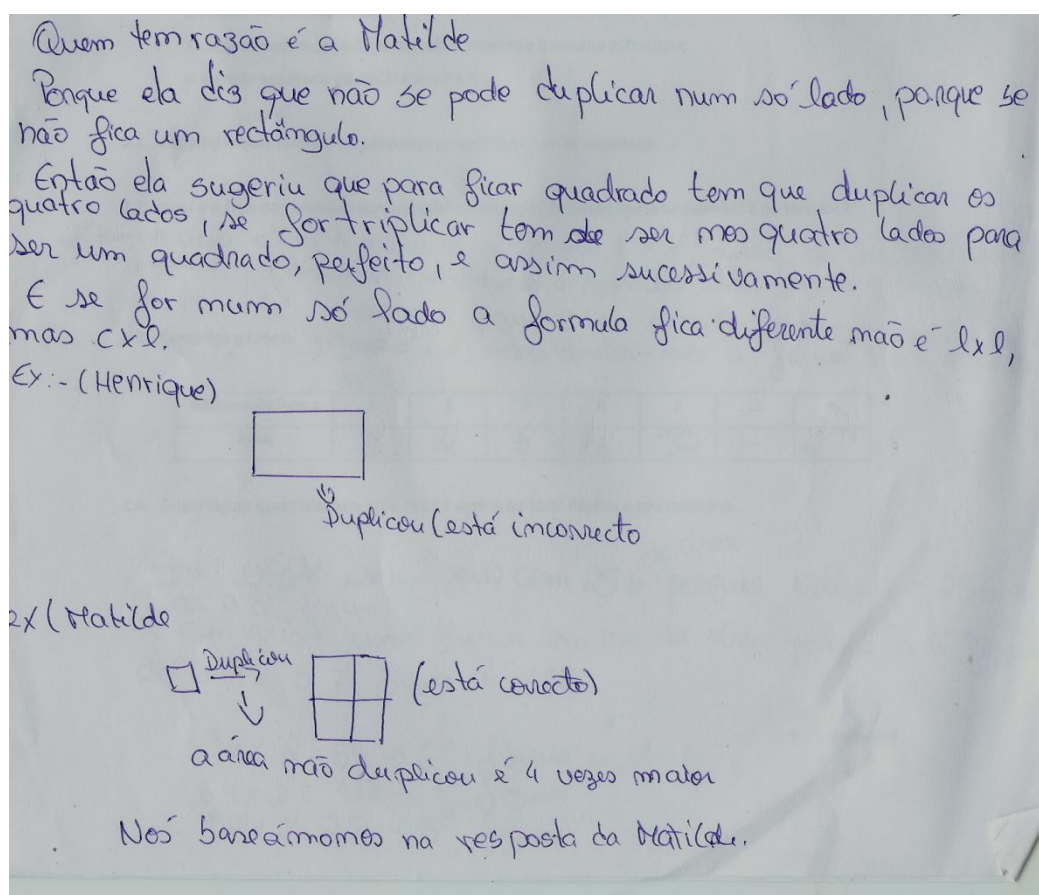 Quem tem razão é a Matilde
Porque ela diz que não se pode duplicar num só lado, porque se
não fica um rectângulo.
Então ela sugeriu que para ficar quadrado tem que duplicar os
quatro lados, se for triplicar tem de ser nos quatro lados para
ser um quadrado, perfeito, e assim sucessivamente.
E se for num só lado a formula fica diferente não é lxl,
mas cxl.
Ex:- (Henrique)
Duplicou (está incorrecto
Ex (Matilde
Duplicou
(está correcto)
a área não duplicou é 4 vezes maior
Nós baseámonos na resposta da Matilde.